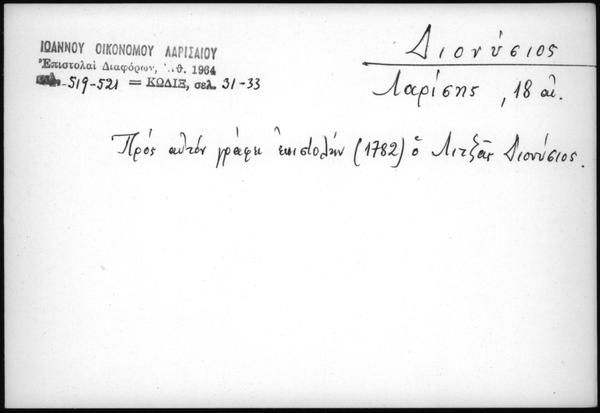 ΙΩΑΝΝΟΥ ΟΙΚΟΝΟΜΟΥ ΛΑΡΙΣΑΙΟΥ
Ἐπιστολαὶ Διαφόρων, Ἀθ. 1964
519-521 = ΚΩΔΙΞ, σελ. 31-33
Διονύσιος
Λαρίσης, 18 αἰ.
Πρός αὐτόν γράφει ἐπιστολήν (1782) ὁ Λιτζᾶς Διονύσιος.